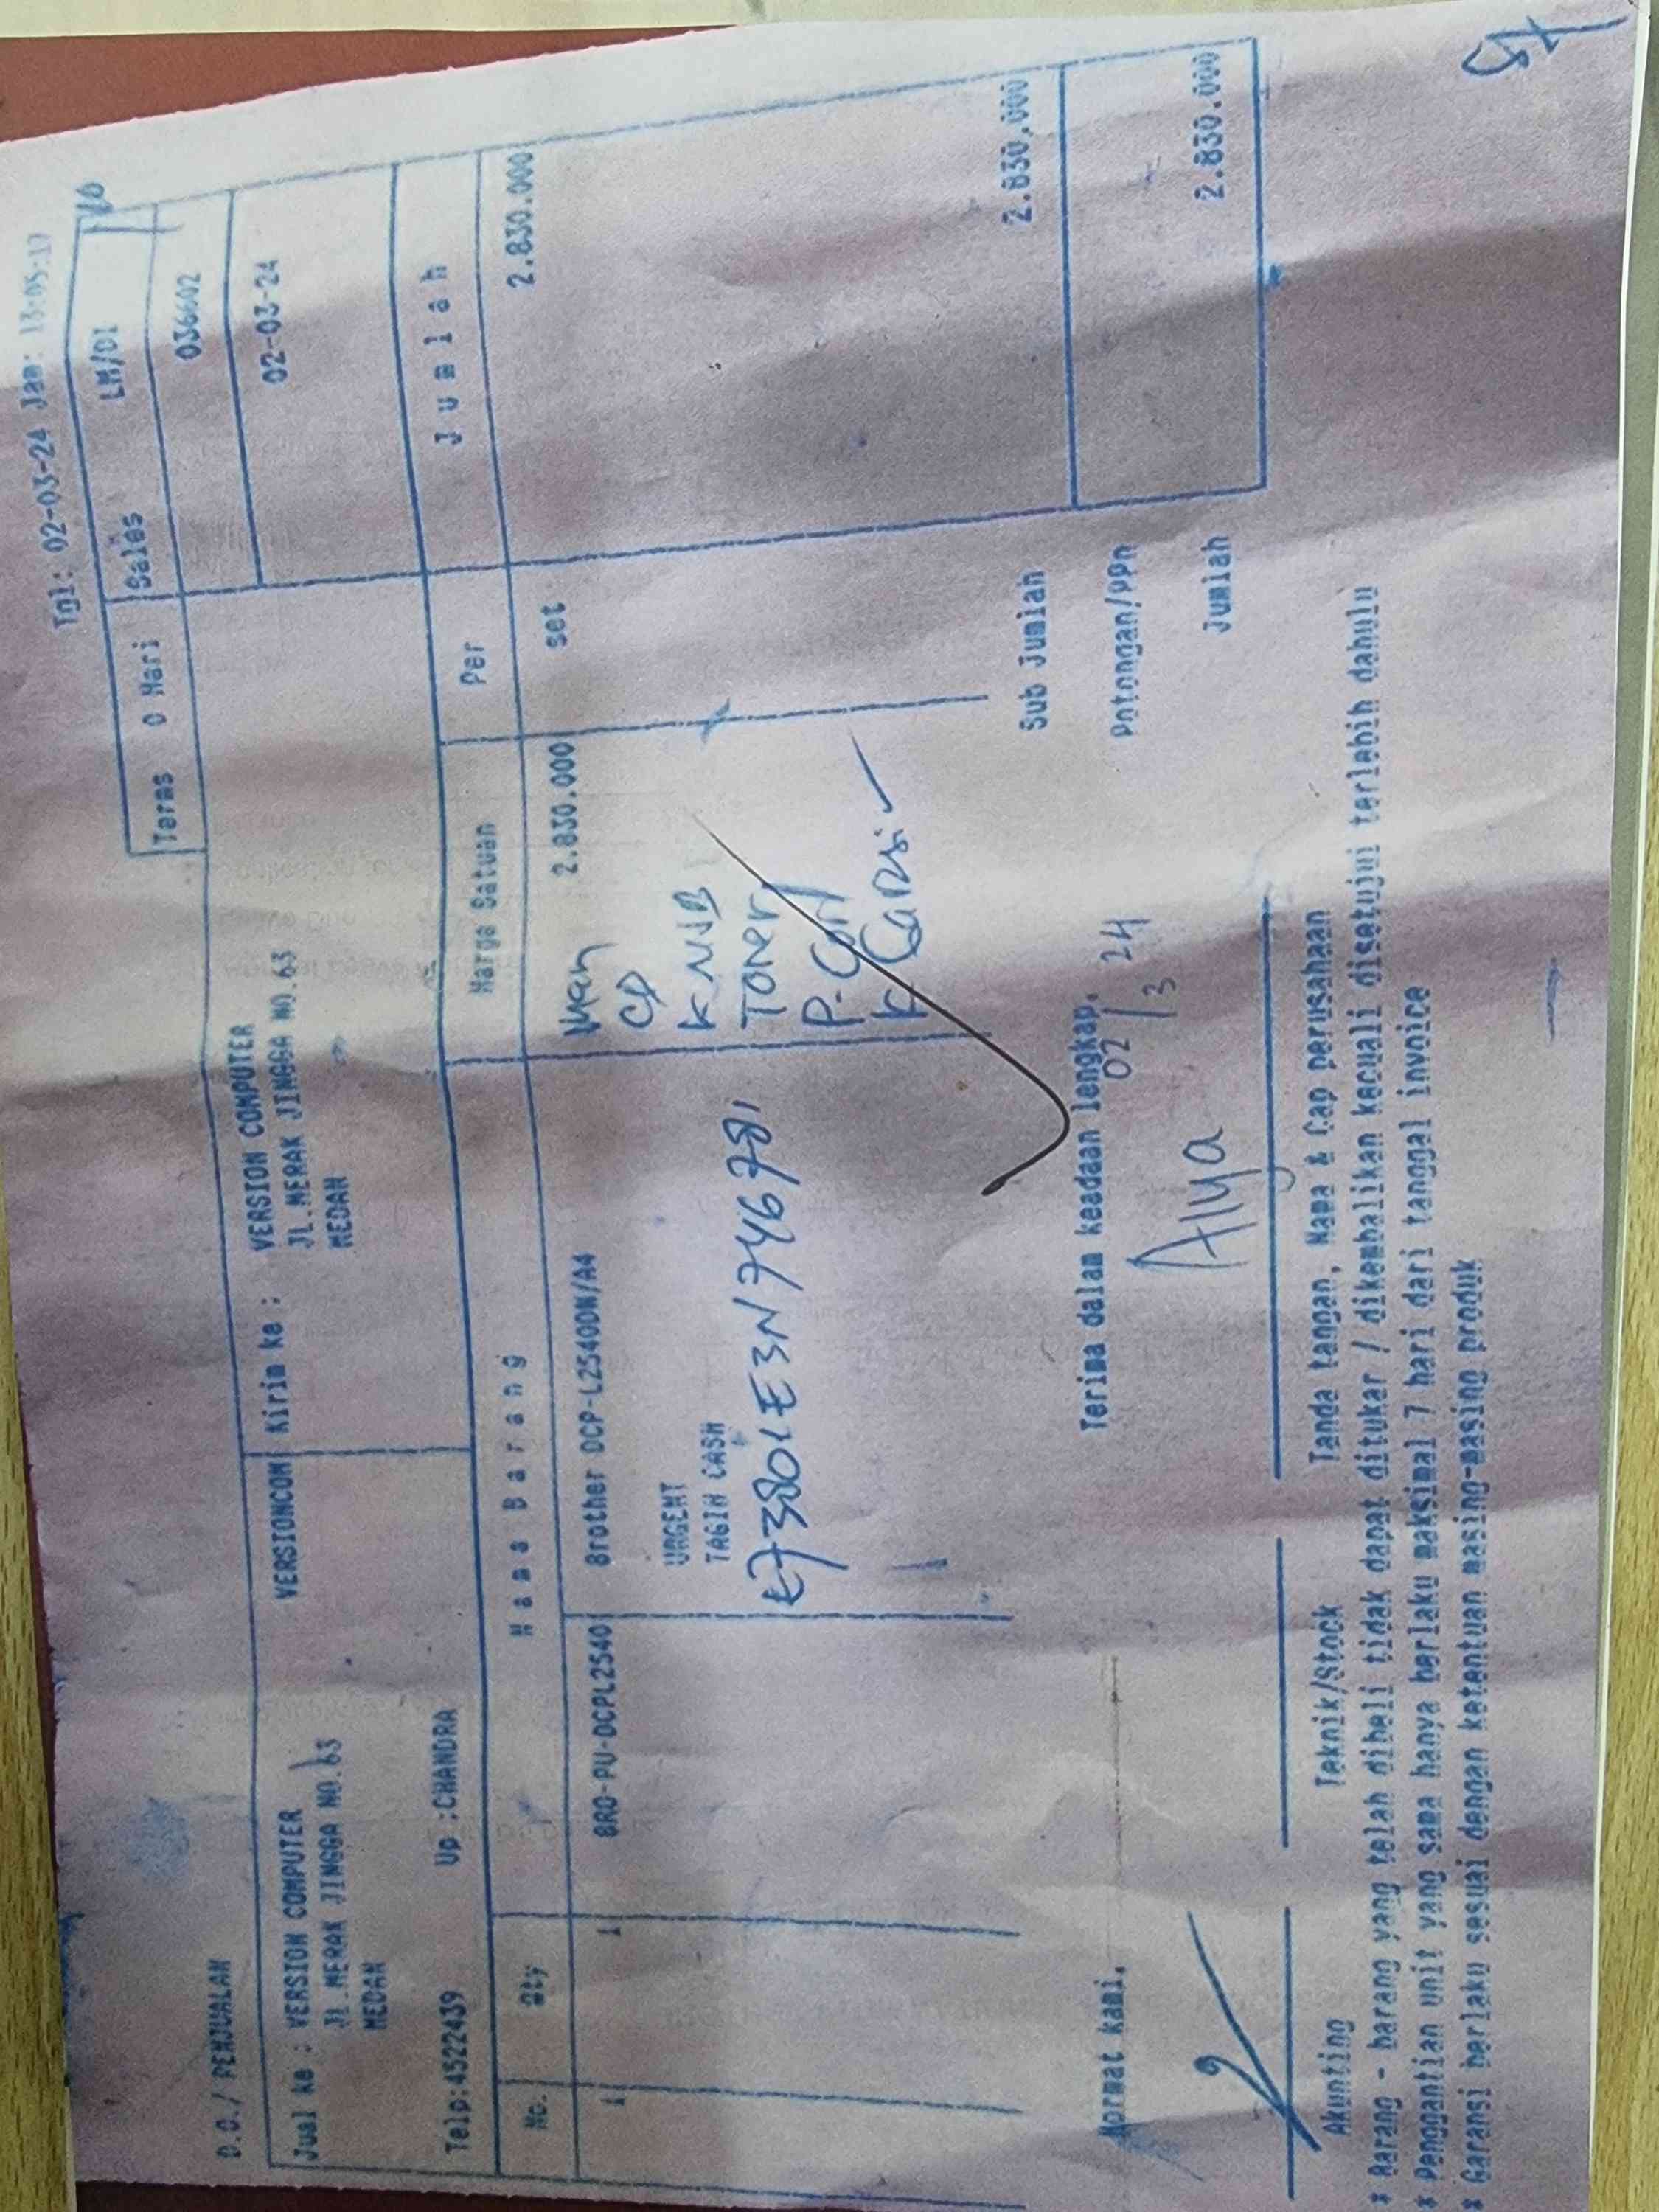 Tgl: 02-03-24 Jam: 13:05:17
D.O./ PENJUALAN
Terms 0 Hari Sales LM/01
036602
02-03-24
Jual ke : VERSION COMPUTER VERSIONCOM Kirim ke : VERSION COMPUTER
JL.MERAK JINGGA NO.63 JL.MERAK JINGGA NO.63
MEDAN MEDAN
Telp:4522439 Up :CHANDRA
No. Qty Nama Barang Harga Satuan Per Jumlah
1 1 BRO-PU-DCPL2540 Brother DCP-L2540DW/A4 2.830.000 set 2.830.000
CD
URGENT
TAGIH CASH
TONER
K Garansi
Sub Jumlah 2.830.000
Terima dalam keadaan lengkap. Potongan/PPn
Hormat kami,
02/3 24
Jumlah 2.830.000
Alya
Akunting Teknik/Stock Tanda tangan, Nama & Cap perusahaan
* Barang - barang yang telah dibeli tidak dapat ditukar / dikembalikan kecuali disetujui terlebih dahulu
* Penggantian unit yang sama hanya berlaku maksimal 7 hari dari tanggal invoice
* Garansi berlaku sesuai dengan ketentuan masing-masing produk